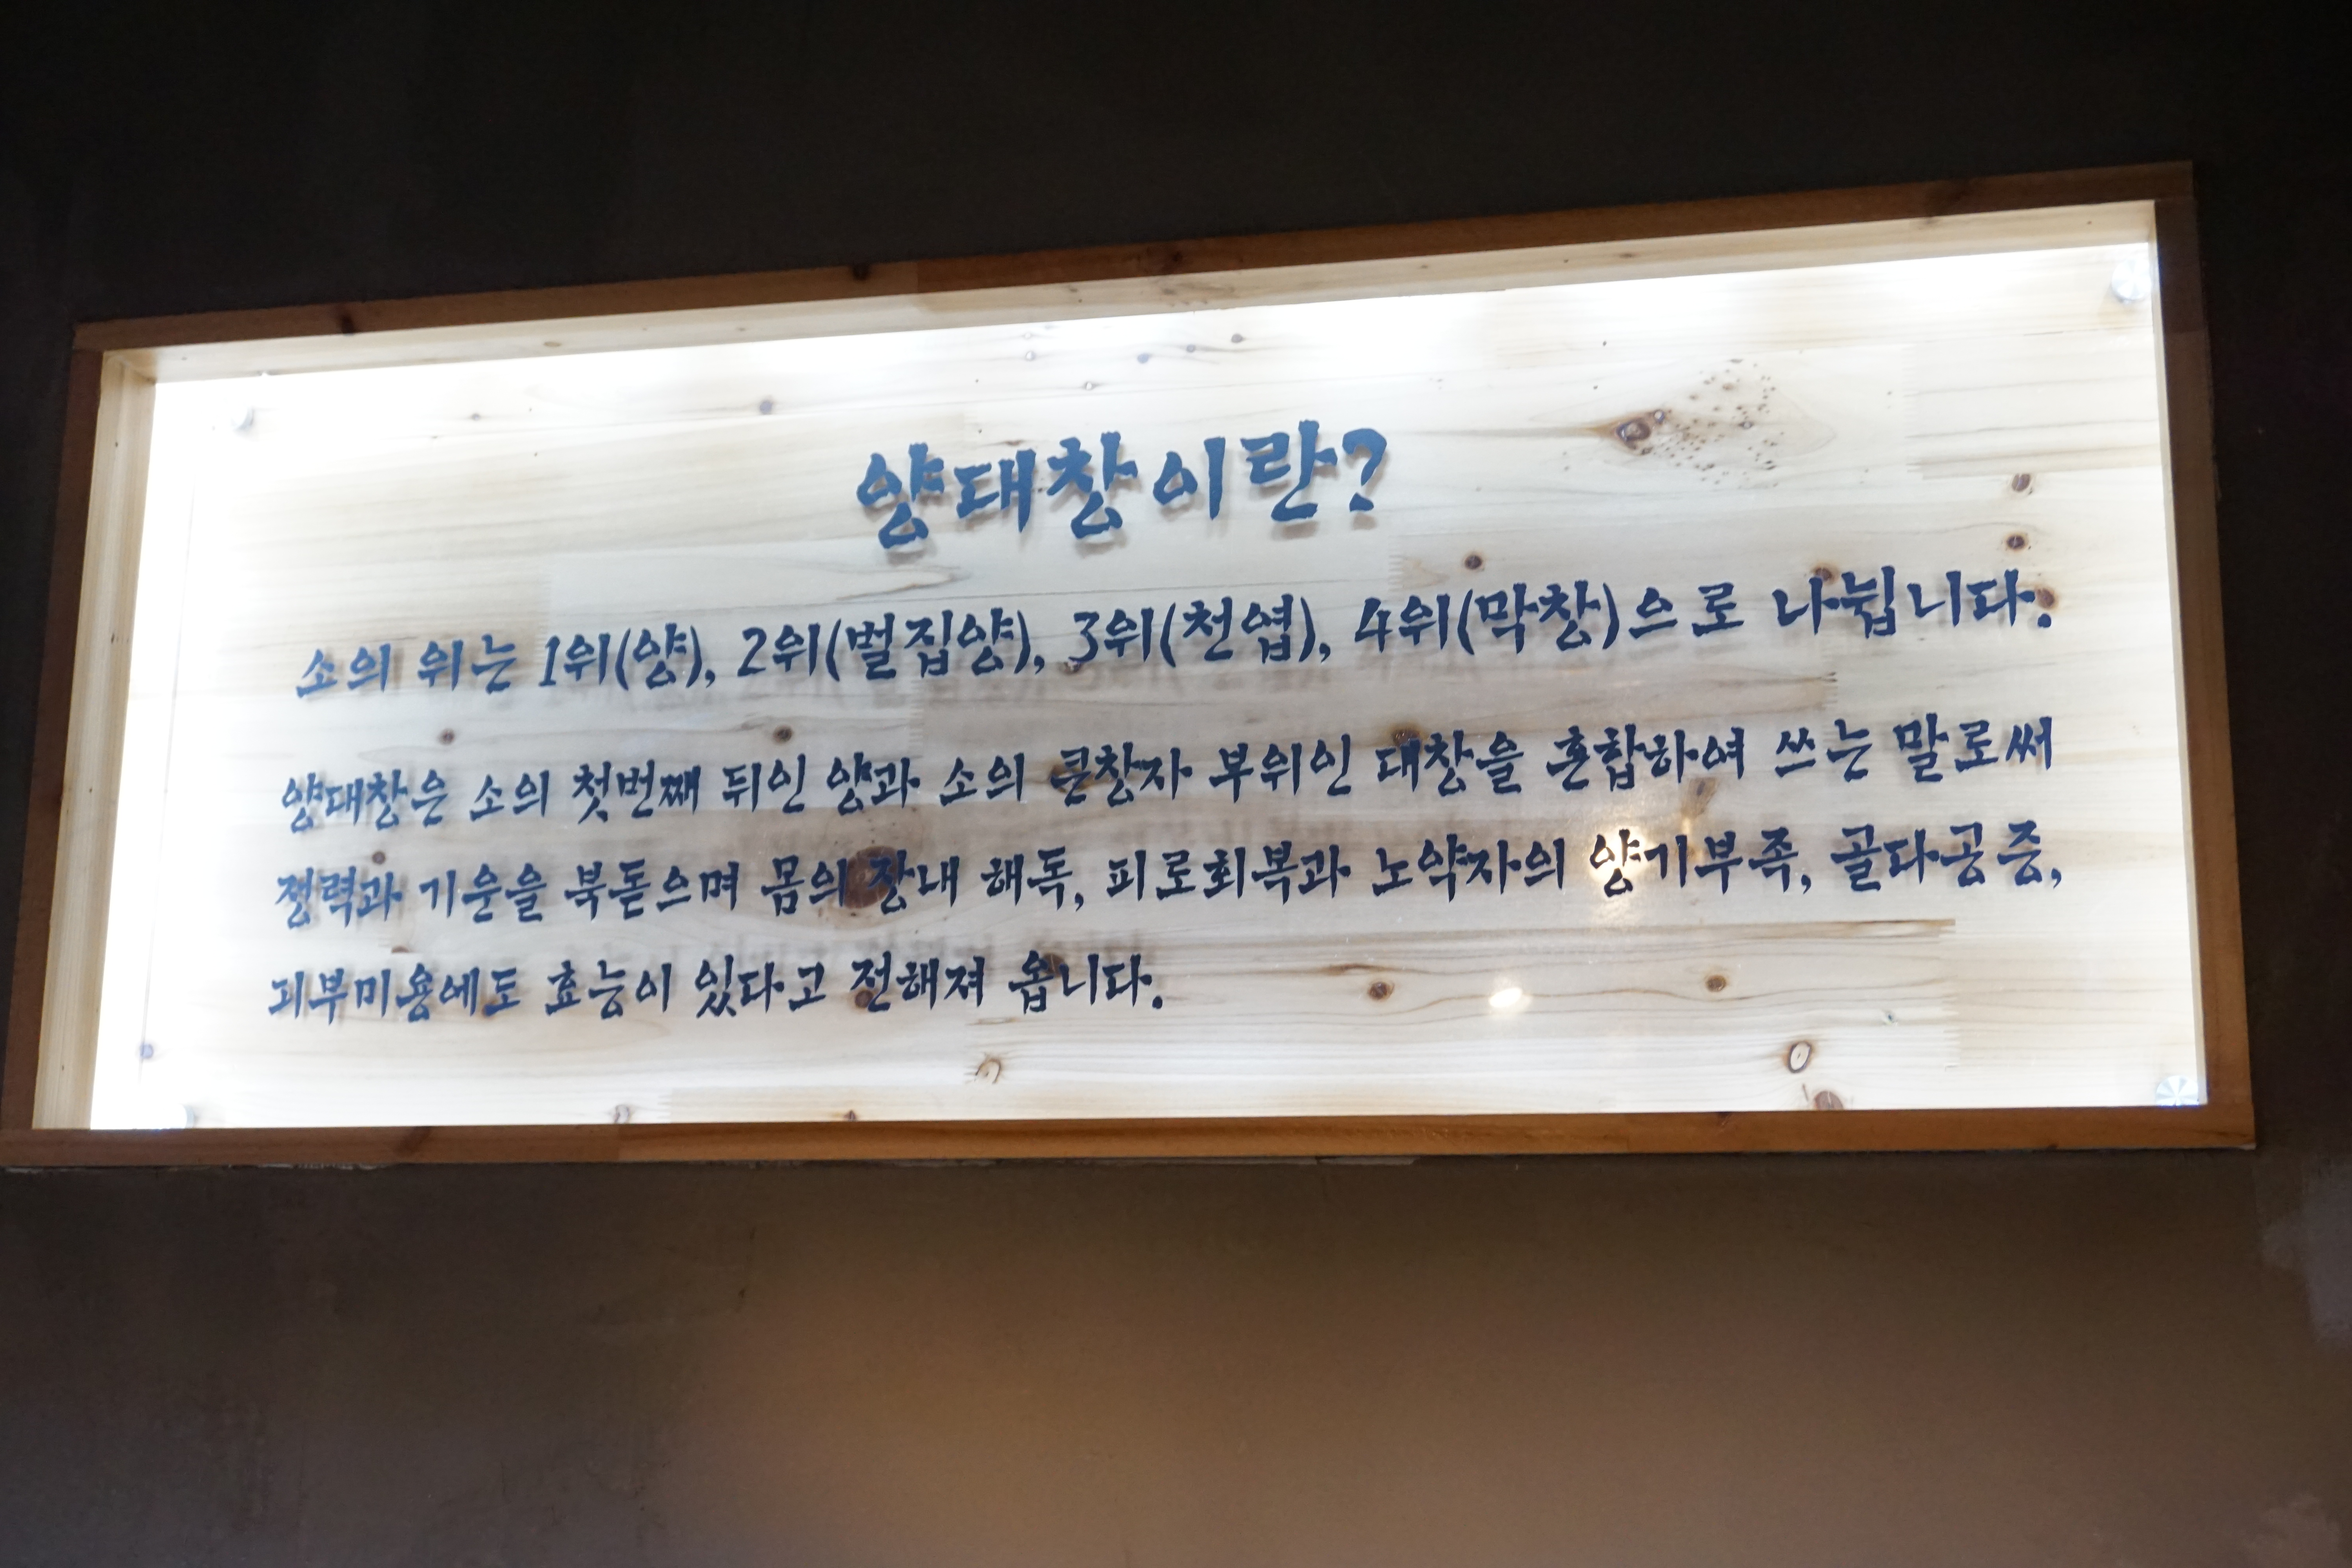 양대창이란?
소의 위는 1위(양), 2위(벌집양), 3위(천엽), 4위(막창)으로 나뉩니다.
양대창은 소의 첫번째 뒤인 양과 소의 큰창자 부위인 대창을 혼합하여 쓰는 말로써
정력과 기운을 북돋으며 몸의 장내 해독, 피로회복과 노약자의 양기부족, 골다공증,
피부미용에도 효능이 있다고 전해져 옵니다.